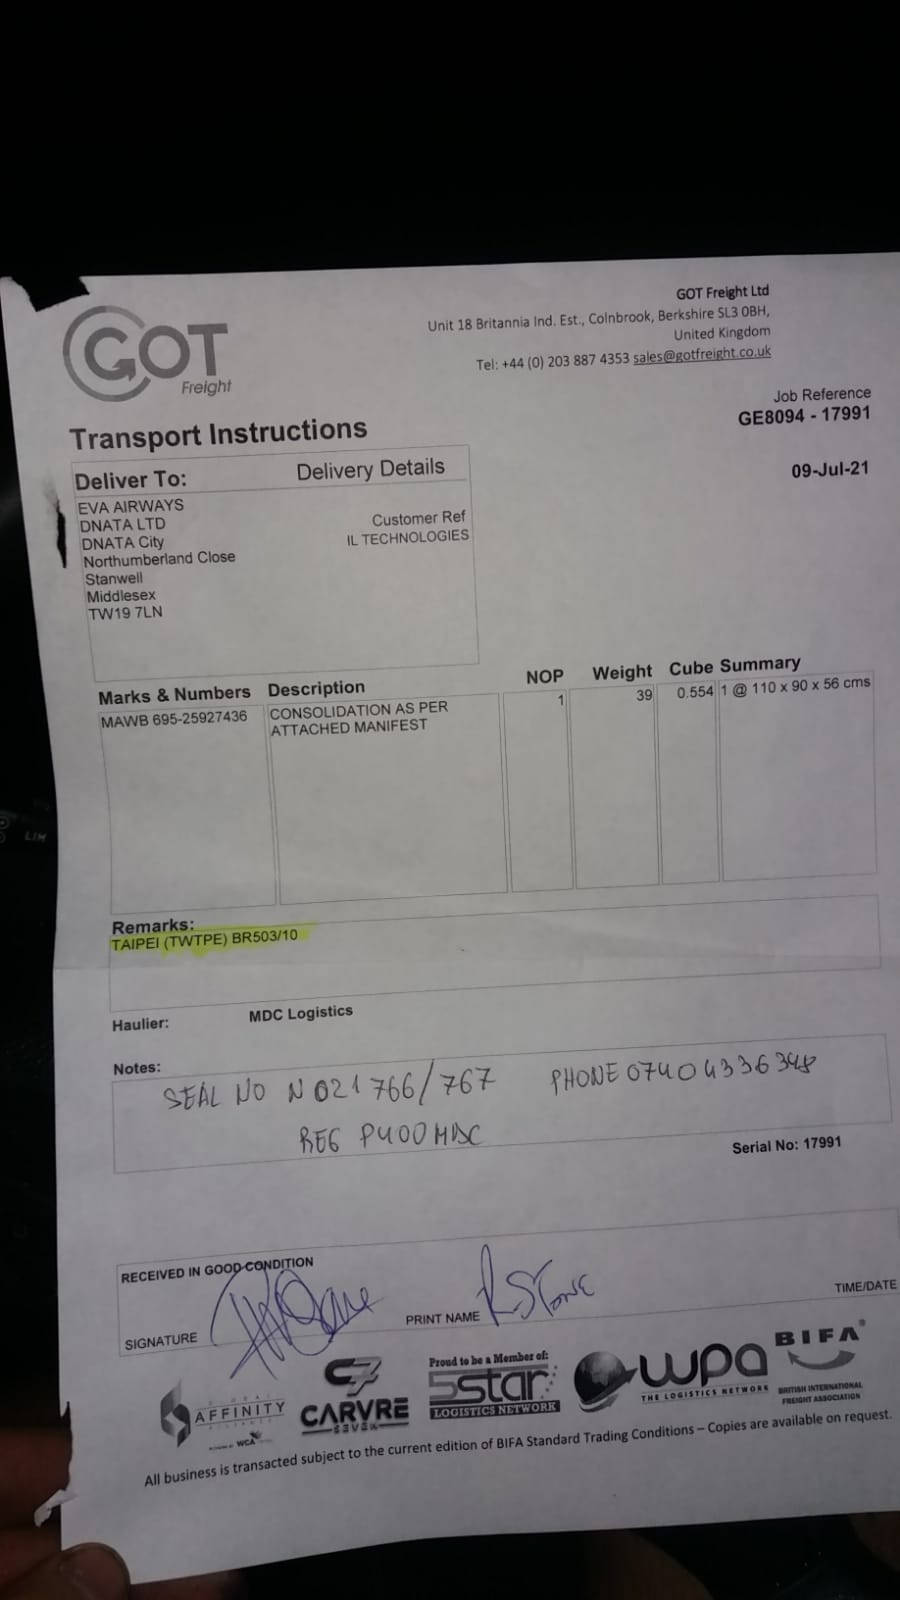 GOT
Freight
GOT Freight Ltd
Unit 18 Britannia Ind. Est., Colnbrook, Berkshire SL3 0BH,
United Kingdom
Tel: +44 (0) 203 887 4353 sales@gotfreight.co.uk
Job Reference
GE8094 - 17991
09-Jul-21
Transport Instructions
Deliver To: Delivery Details
EVA AIRWAYS
DNATA LTD
DNATA City
Northumberland Close
Stanwell
Middlesex
TW19 7LN
Customer Ref
IL TECHNOLOGIES
Marks & Numbers Description NOP Weight Cube Summary
MAWB 695-25927436 CONSOLIDATION AS PER 1 39 0.554 1 @ 110 x 90 x 56 cms
ATTACHED MANIFEST
Remarks:
TAIPEI (TWTPE) BR503/10
Haulier: MDC Logistics
Notes:
SEAL NO N021766/767 PHONE 07404336348
REG P400MDC
Serial No: 17991
RECEIVED IN GOOD CONDITION
SIGNATURE PRINT NAME R STONE TIME/DATE
AFFINITY
WCA
C7
CARVRE
SEVEN
Proud to be a Member of:
5star
LOGISTICS NETWORK
wpa
THE LOGISTICS NETWORK
BIFA
BRITISH INTERNATIONAL
FREIGHT ASSOCIATION
All business is transacted subject to the current edition of BIFA Standard Trading Conditions – Copies are available on request.
LIM